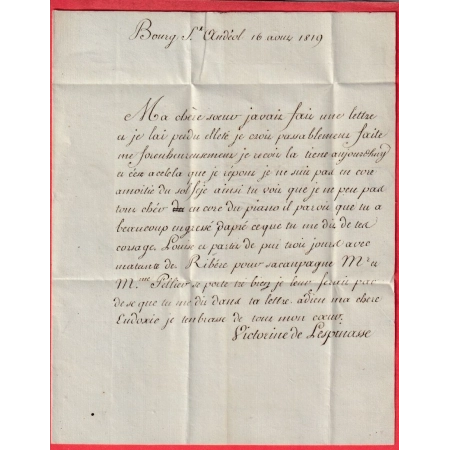 Bourg St Andéol 16 aout 1819
Ma chère soeur javait fait une lettre
et je lai perdu elleté je croit passablement faite
me foreuhureusement je recoit la tiene aujourdhuy
et cès acelela que je répont je ne suit pas en core
amoitié du solfeje ainsi tu voit que je ne peu pas
toucher du en core du piano il paroit que tu a
beaucoup engressé dapré ce que tu me dit de ton
corsage. Louise et partie de puit troit jours avec
matante de Ribère pour sacanpagne Mr et
Mme Pellier se porte tre bien je leur ferait par
de se que tu me dit dans ta lettre. adieu ma chere
Eudoxie je tenbrasse de tout mon coeur.
Victorine de Lespinasse